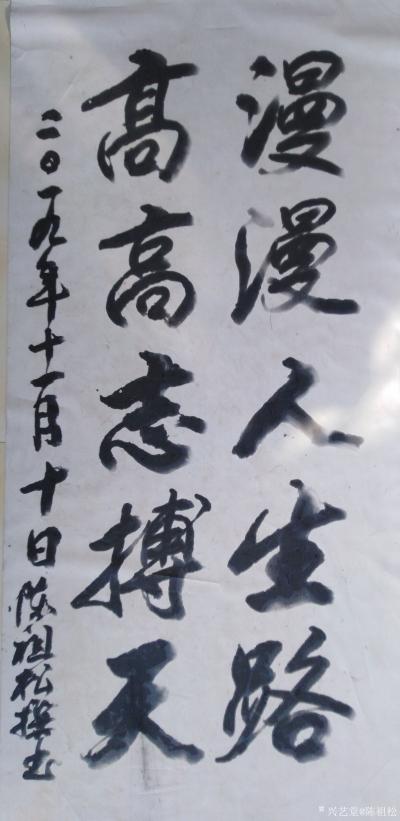 漫漫人生路
髙高志搏天
二〇一九年十一月十日陈祖松撰书
兴艺堂@陈祖松